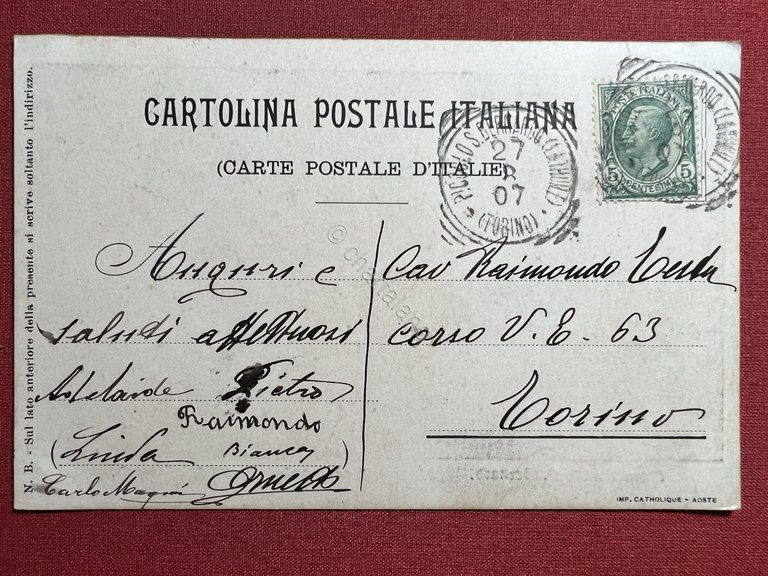 CARTOLINA POSTALE ITALIANA
(CARTE POSTALE D'ITALIE)
N. B. - Sul lato anteriore della presente si scrive soltanto l'indirizzo.
POSTE ITALIANE
5 CENTESIMI 5
PICCOLO S. BERNARDO (LA THUILE)
27
8
07
(TORINO)
Auguri e
saluti affettuosi
Adelaide Pietro
Raimondo
(Linda Bianca
Carlo Ernesto
Cav Raimondo Testa
corso V. E. 63
Torino
IMP. CATHOLIQUE - AOSTE